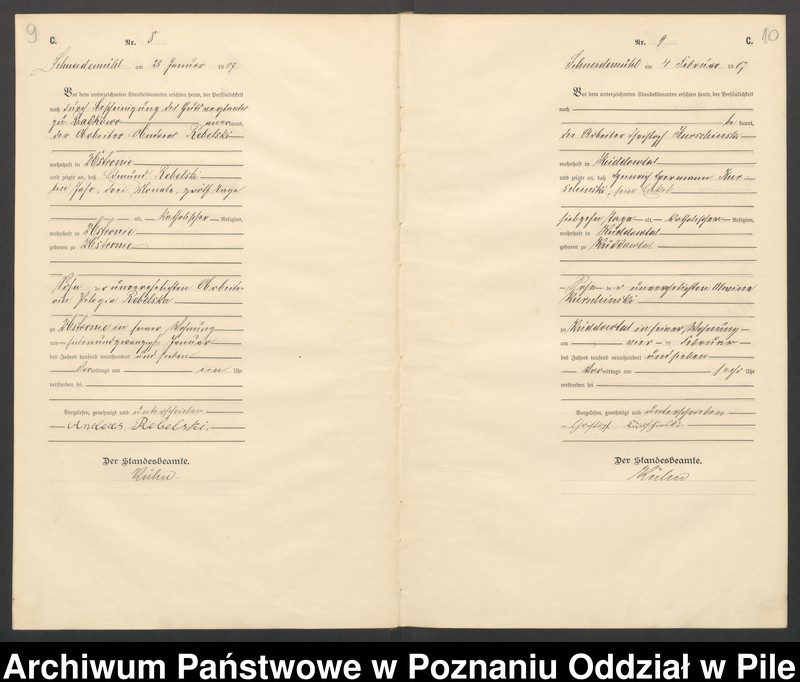 9
C.
Nr. 8
Schneidemühl am 28 Januar 1907.
Vor dem unterzeichneten Standesbeamten erschien heute, der Persönlichkeit
nach durch Bescheinigung des Gutsvorstandes
zu anerkannt,
der Arbeiter Andreas Rebelski
wohnhaft in Ustronie
und zeigte an, daß Edmund Rebelski
ein Jahr, drei Monate, zwölf Tage
alt, katholischer Religion,
wohnhaft in Ustronie
geboren zu Ustronie
Sohn der unverehelichten Arbeite-
rin Pelagia Rebelska
zu Ustronie in seiner Wohnung
am siebenundzwanzigsten Januar
des Jahres tausend neunhundert und sieben
Vormittags um ein Uhr
verstorben sei.
Vorgelesen, genehmigt und unterschrieben
Andreas Rebelski.
Der Standesbeamte.
Kühn
10
Nr. 9
C.
Schneidemühl am 4 Februar 1907
Vor dem unterzeichneten Standesbeamten erschien heute, der Persönlichkeit
nach
be kannt,
der Arbeiter Christoph
wohnhaft in Küddowtal
und zeigte an, daß Heinrich Hermann Kur-
schinski, sein Enkel
siebzehn Tage alt, katholischer Religion,
wohnhaft in Küddowtal
geboren zu Küddowtal
Sohn der unverehelichten Alwine
Kurschinski
zu Küddowtal in seiner Wohnung
am vier ten Februar
des Jahres tausend neunhundert und sieben
Vormittags um sechs Uhr
verstorben sei.
Vorgelesen, genehmigt und unterschrieben
Christoph Kurschinski.
Der Standesbeamte.
Kühn
Archiwum Państwowe w Poznaniu Oddział w Pile